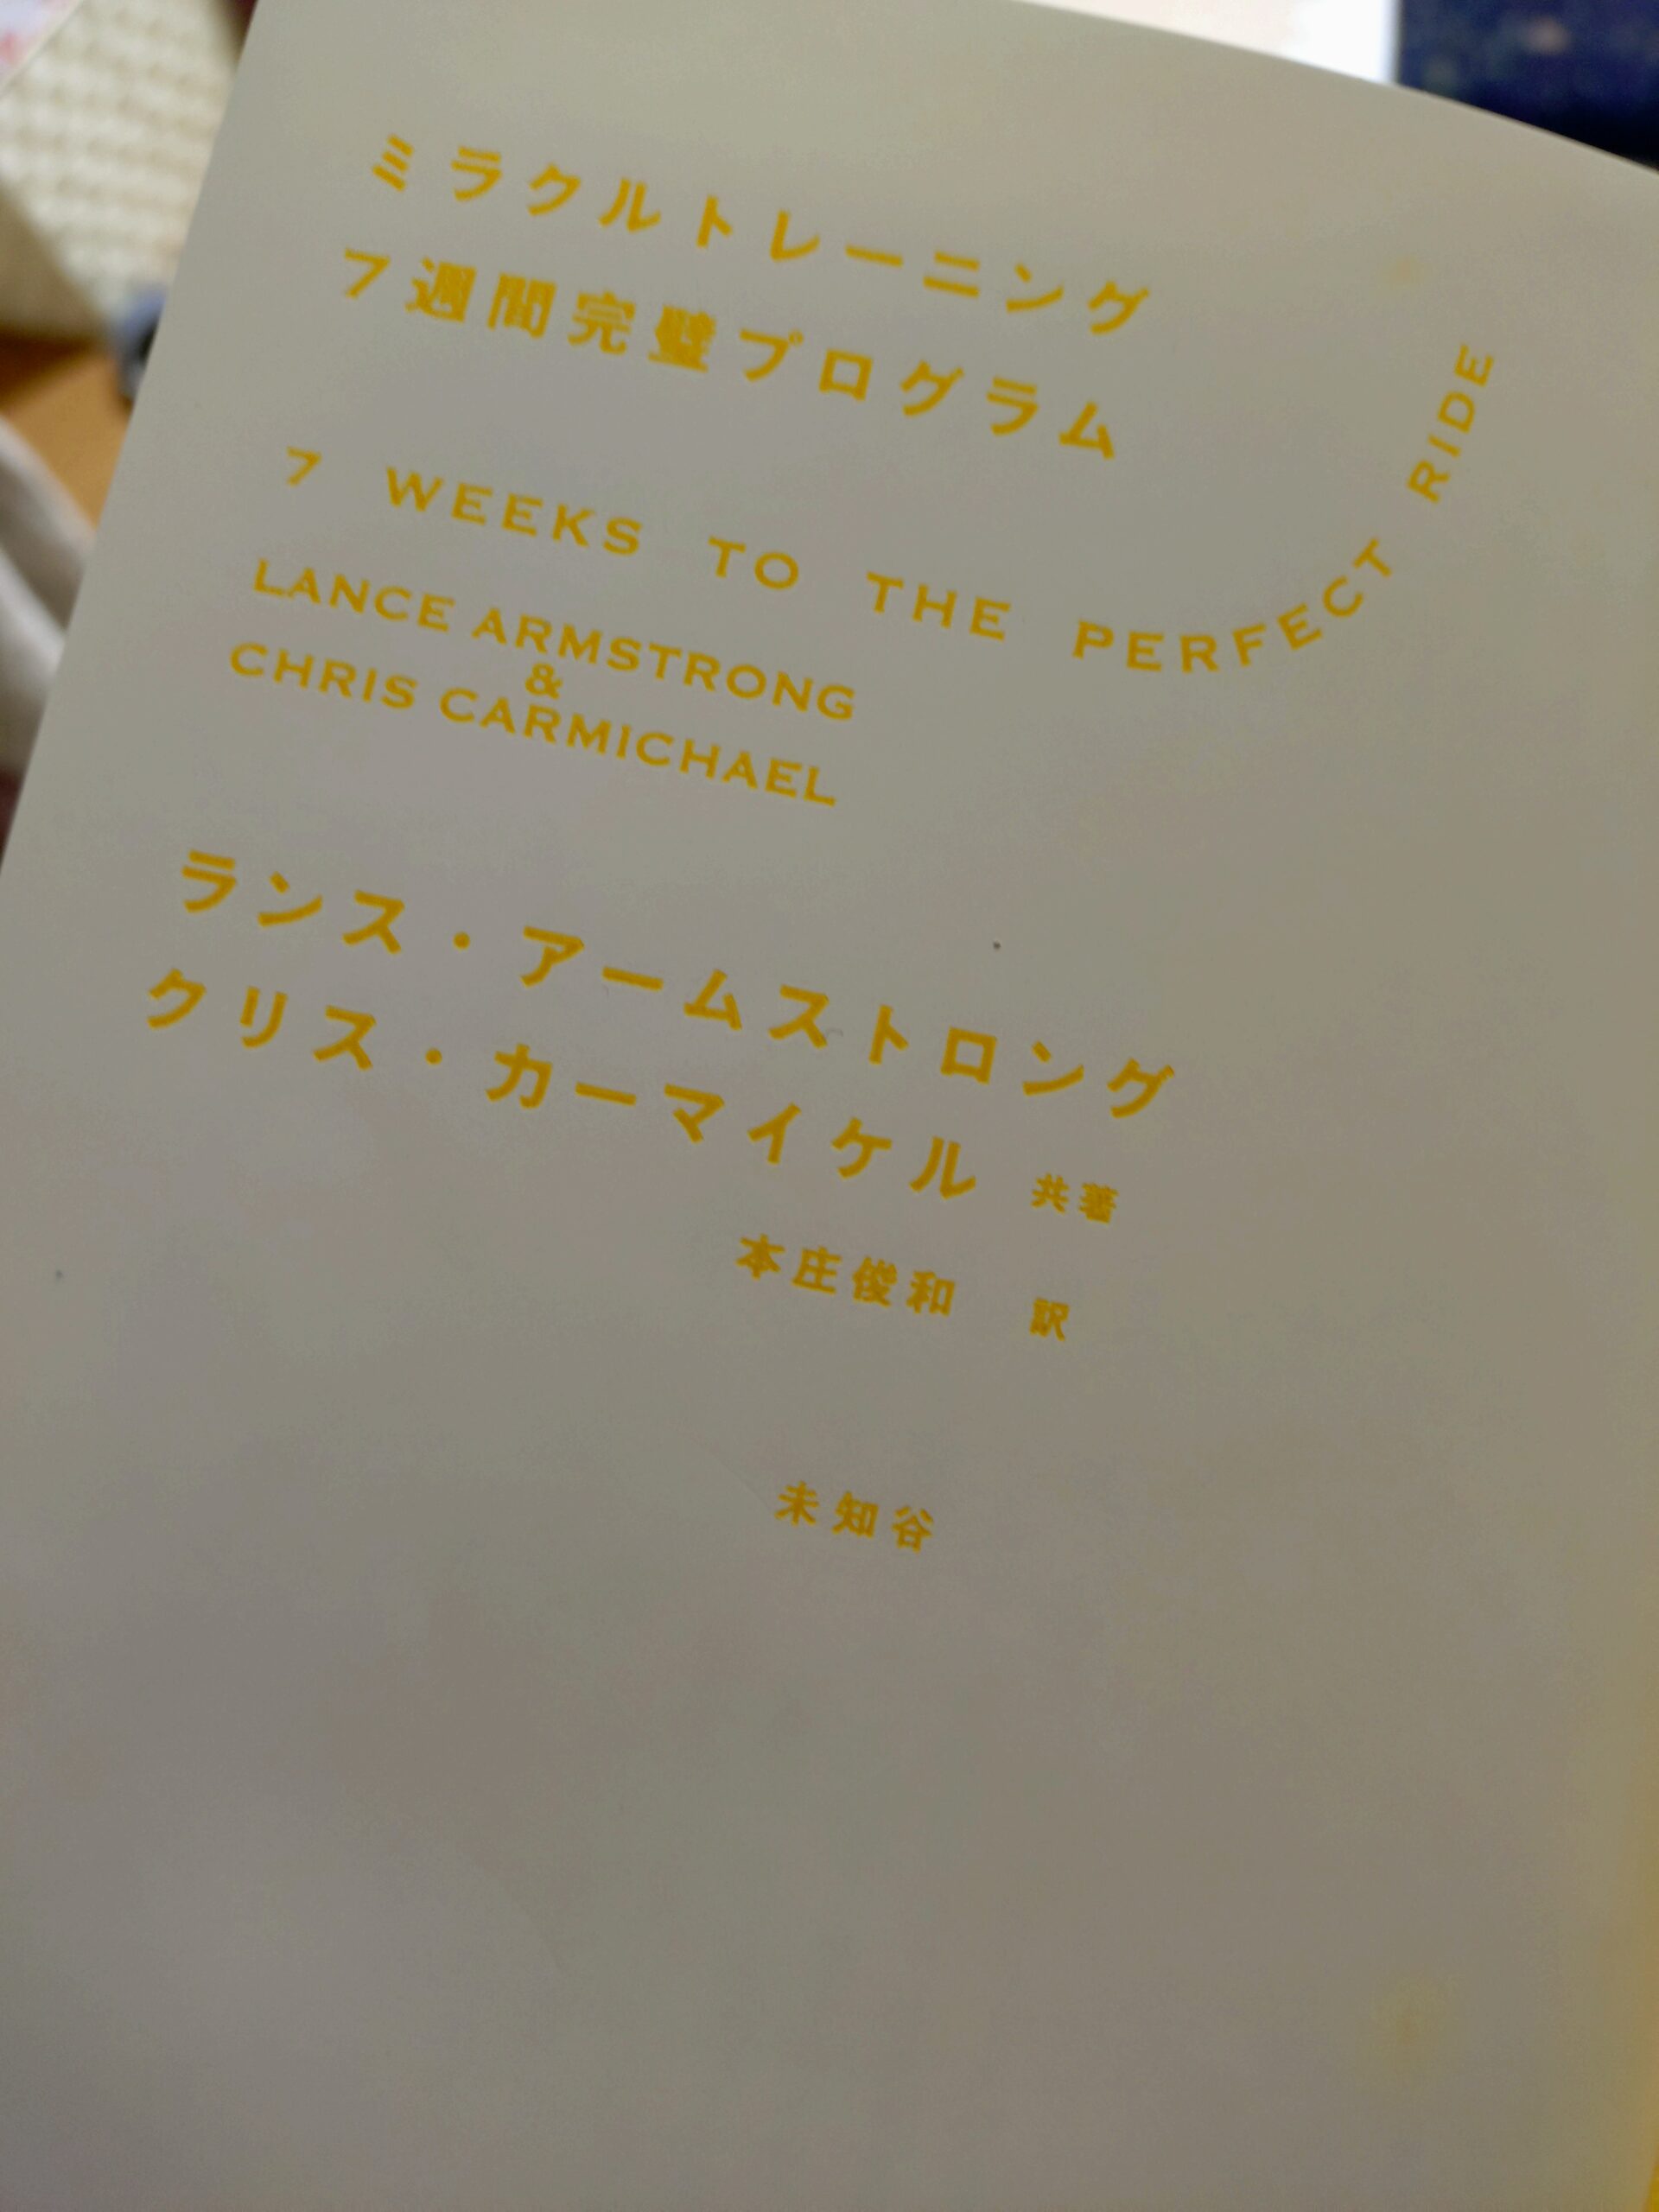 ミラクルトレーニング
7週間完璧プログラム
7 WEEKS TO THE PERFECT RIDE
LANCE ARMSTRONG
&
CHRIS CARMICHAEL
ランス・アームストロング
クリス・カーマイケル 共著
本庄俊和 訳
未知谷